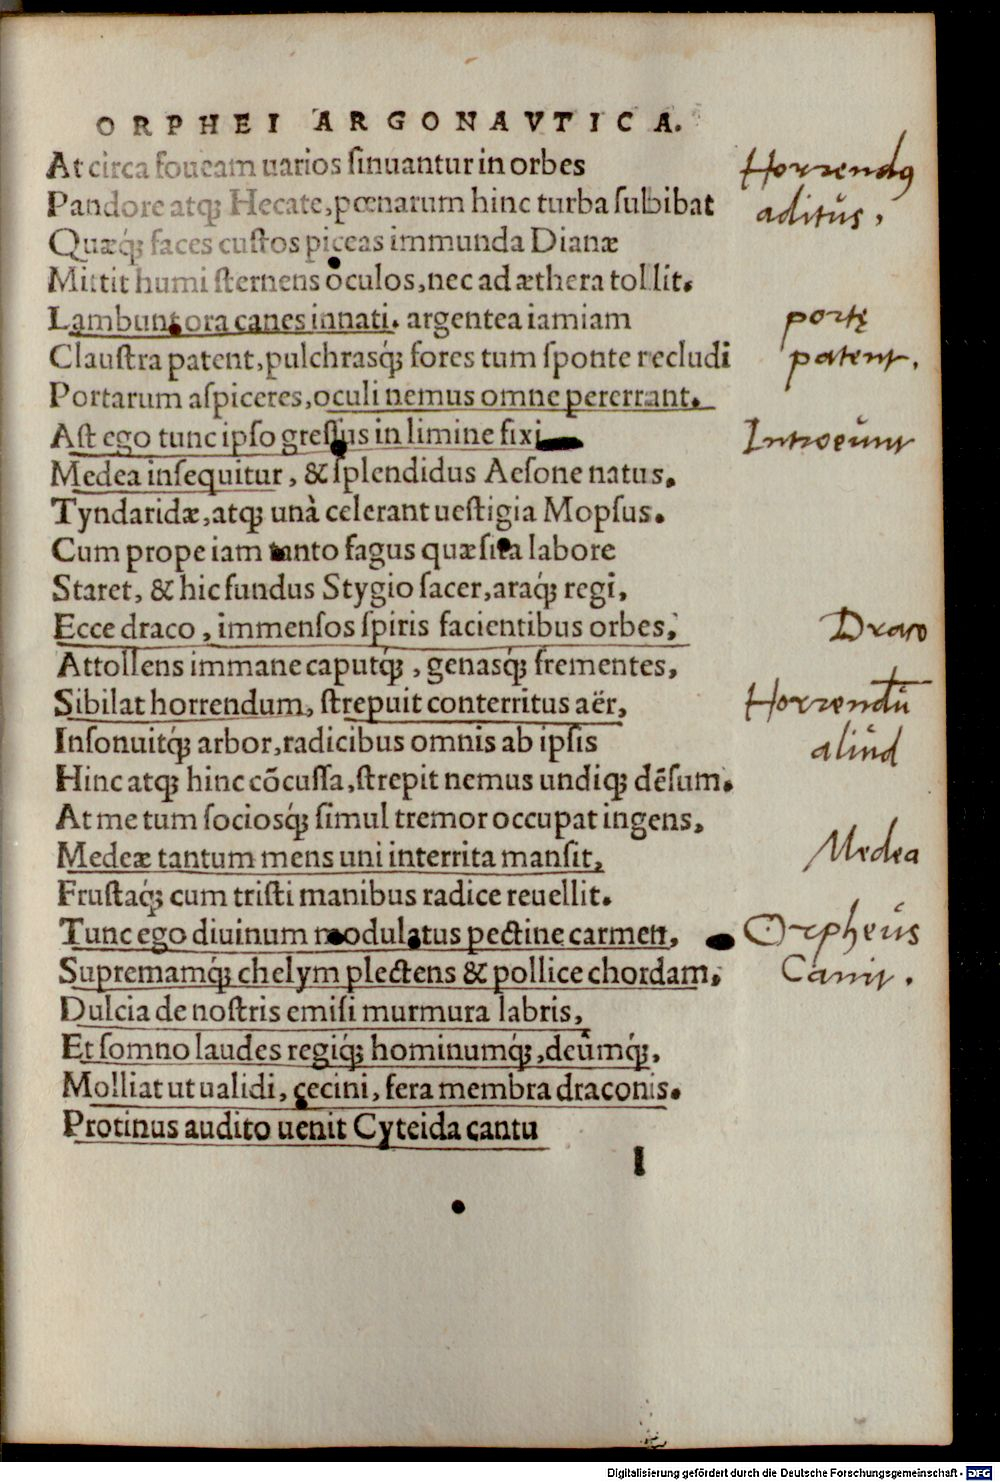 ORPHEI ARGONAVTICA.
At circa foueam uarios sinuantur in orbes
Horrendꝰ
Pandore atqꝫ Hecate, pœnarum hinc turba subibat
aditus,
Quæqꝫ́ faces custos piceas immunda Dianæ
Mittit humi sternens oculos, nec ad æthera tollit.
Lambunt ora canes innati. argentea iamiam
portę
Claustra patent, pulchrasqꝫ́ fores tum sponte recludi
patent.
Portarum aspiceres, oculi nemus omne pererrant.
Ast ego tunc ipso gressus in limine fixi
Introeunt
Medea insequitur, & splendidus Aesone natus.
Tyndaridæ, atqꝫ unà celerant uestigia Mopsus.
Cum prope iam tanto fagus quæsita labore
Staret, & hic fundus Stygio sacer, araqꝫ́ regi,
Ecce draco, immensos spiris facientibus orbes,
Draco
Attollens immane caputqꝫ́, genasqꝫ́ frementes,
Sibilat horrendum, strepuit conterritus aër,
Horrendū
Insonuitqꝫ́ arbor, radicibus omnis ab ipsis
aliud
Hinc atqꝫ hinc cōcussa, strepit nemus undiqꝫ dēsum.
At me tum sociosqꝫ́ simul tremor occupat ingens,
Medeæ tantum mens uni interrita mansit,
Medea
Frustaqꝫ́ cum tristi manibus radice reuellit.
Tunc ego diuinum modulatus pectine carmen,
Orpheus
Supremamqꝫ́ chelym plectens & pollice chordam,
Canit.
Dulcia de nostris emisi murmura labris,
Et somno laudes regiqꝫ́ hominumqꝫ́, deûmqꝫ́,
Molliat ut ualidi, cecini, fera membra draconis.
Protinus audito uenit Cyteida cantu
I
Digitalisierung gefördert durch die Deutsche Forschungsgemeinschaft - DFG